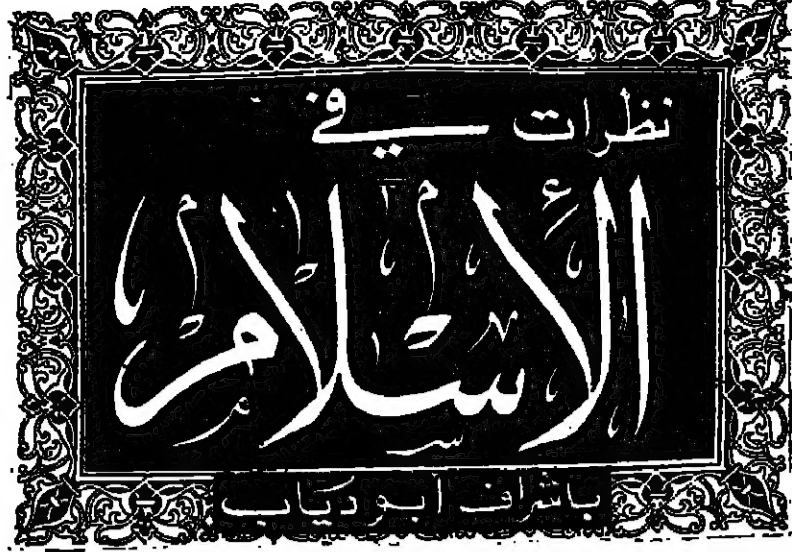 نظرات في
الإسلام
باشراف ابو دياب